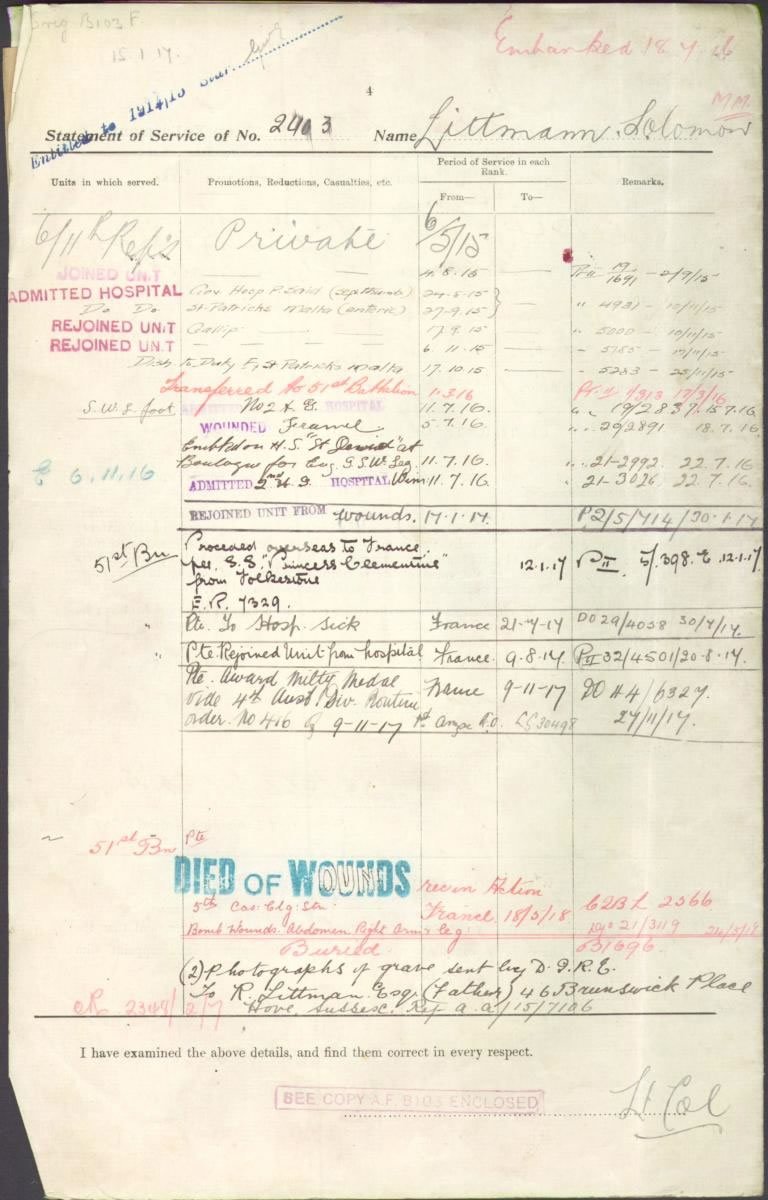 Orig B103 F.
15.1.17.
Embarked 18.7.
Entitled to 1914/15 Star
4
M.M.
Statement of Service of No. 2403 Name Littmann, Solomon
Units in which served. Promotions, Reductions, Casualties, etc. Period of Service in each Rank. From— To— Remarks.
6/11th Rein Private 6/5/15
JOINED UNIT 4.8.15 — 2/9/15
ADMITTED HOSPITAL Gov. Hosp P. Said 24-8-15 " 4931 - 10/11/15
Do Do St. Patricks Malta (enteric) 27-9-15
REJOINED UNIT Gallip 17.9.15 " 5000 - 10/11/15
REJOINED UNIT — — 6.11.15 - 5785 - 17/11/15
Disch to Duty Fr St Patricks Malta 17.10.15 - 5283 - 25/11/15
Transferred to 51st Battalion 1.3.16 7313 17/3/16
S.W.L. foot. ADMITTED No 2 A. G. HOSPITAL 11.7.16. " 19/2837. 15.7.16.
WOUNDED France 5.7.16. " 29/2891 18.7.16.
Embkd on H.S. "St David" at
Boulogne for Eng. G.S.W. Leg. 11.7.16. " 21-2992. 22.7.16.
E 6.11.16
ADMITTED 2nd A.G. HOSPITAL Wim. 11.7.16. 21-3026 22.7.16.
REJOINED UNIT FROM wounds. 17.1.17. P2/5/714/30.1.17
51st Bn Proceed overseas to France
per. S.S. "Princess Clementine" 12.1.17 PII. 5/398.E. 12.1.17
from Folkestone
E.R. 7329.
" Pte. To Hosp. Sick France 21-7-17 DO 29/4058 30/7/17.
" Pte Rejoined Unit from hospital France. 9.8.17. PII 32/4501/20.8.17.
Pte. Award Milty Medal France 9-11-17 DO 44/6327.
vide 4th Aust Div. Routine 27/11/17.
order. No 416 of 9-11-17 1st Anzac R.O. LG 30498
51st Bn Pte
DIED OF WOUNDS rec in Action
5th Cas: Clg: Stn: France 18/5/18 C2BL 2566
Bomb Wounds. Abdomen Right Arm & Leg: 21/3119 24/5/18
Buried. B1696.
(2) Photographs of grave sent by D.G.R.E.
To R. Littman. Esq. (Father) 46 Brunswick Place
2348/2/7 Hove, Sussex. Ref a.a./15/7106
I have examined the above details, and find them correct in every respect.
SEE COPY A.F. B103 ENCLOSED
Lt Col